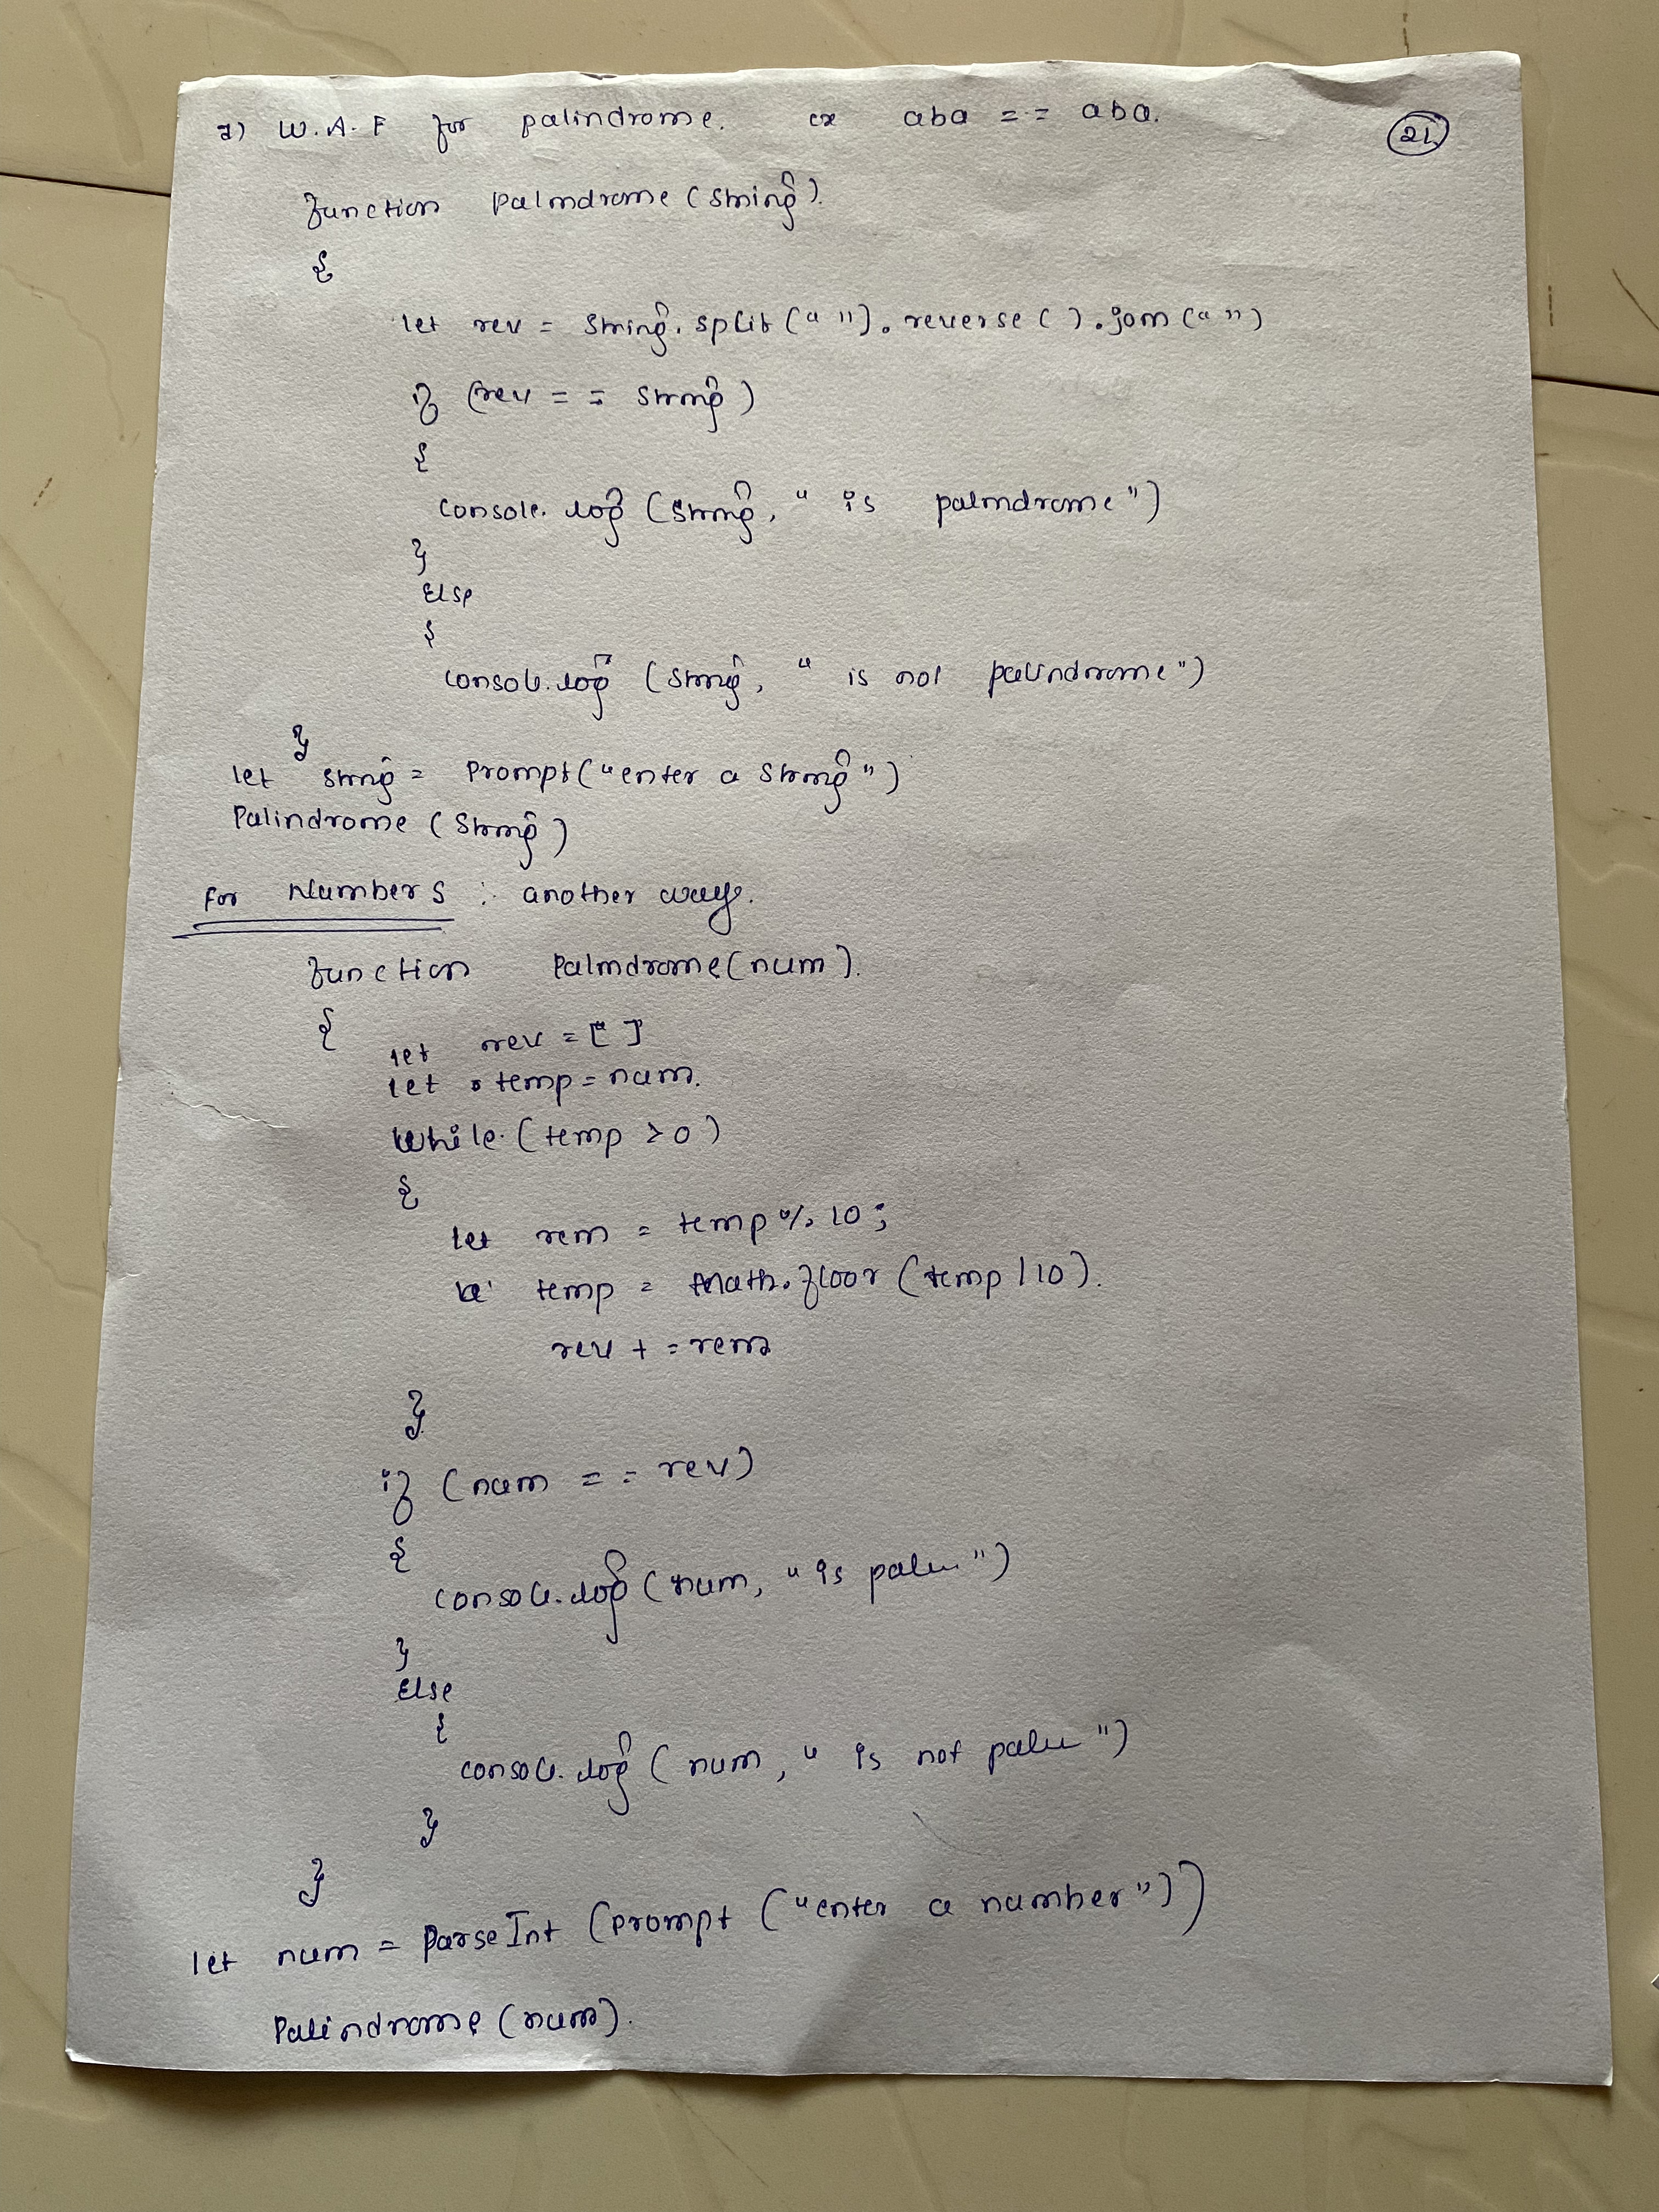 2) W.A.F for palindrome. ex aba == aba. 21
function Palindrome (string).
{
let rev = string.split(" ").reverse().join(" ")
if (rev == string)
{
console.log (string, " is palindrome")
}
Else
{
console.log (string, " is not palindrome")
}
let string = Prompt("enter a string")
Palindrome (string)
For Numbers : another way.
function Palindrome(num).
{
let rev = [" ]
let temp = num.
While (temp > 0)
{
let rem = temp % 10;
temp = Math.floor (temp / 10).
rev + = rem
}
if (num == rev)
{
console.log (num, " is palin")
}
Else
{
console.log ( num, " is not palin")
}
}
let num = ParseInt (Prompt ("enter a number"))
Palindrome (num).